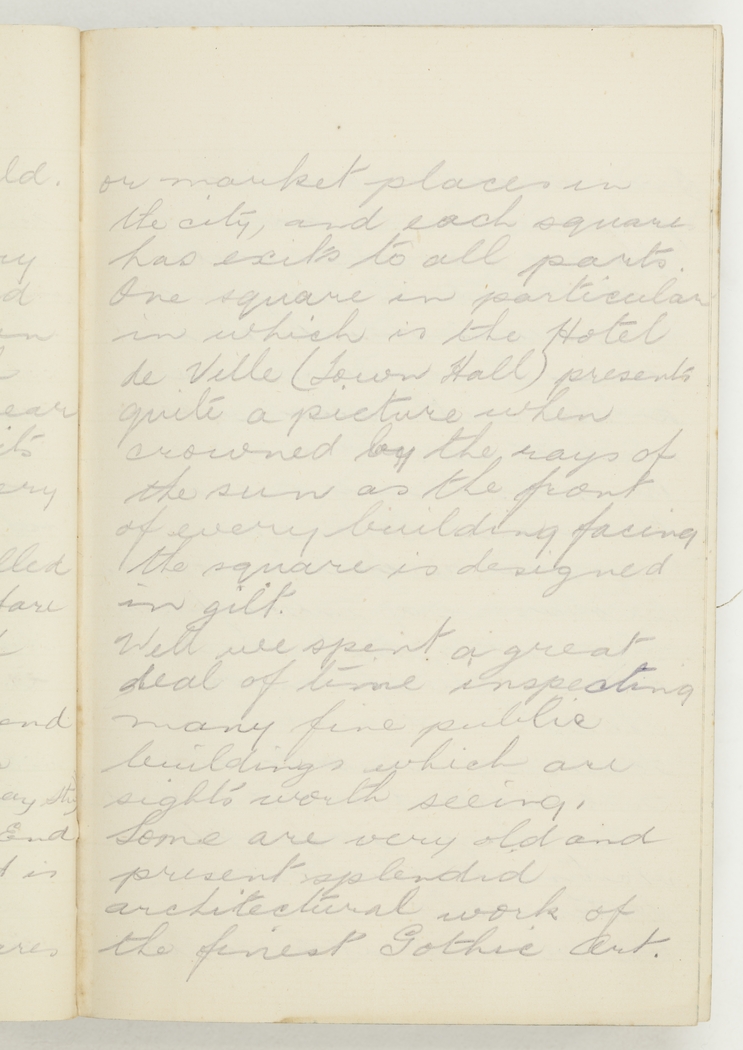 or market places in
the city, and each square
has exits to all parts.
One square in particular
in which is the Hotel
de Ville (Town Hall) presents
quite a picture when
crowned by the rays of
the sun as the front
of every building facing
the square is designed
in gilt.
Well we spent a great
deal of time inspecting
many fine public
buildings which are
sights worth seeing.
Some are very old and
present splendid
architectural work of
the finest Gothic Art.